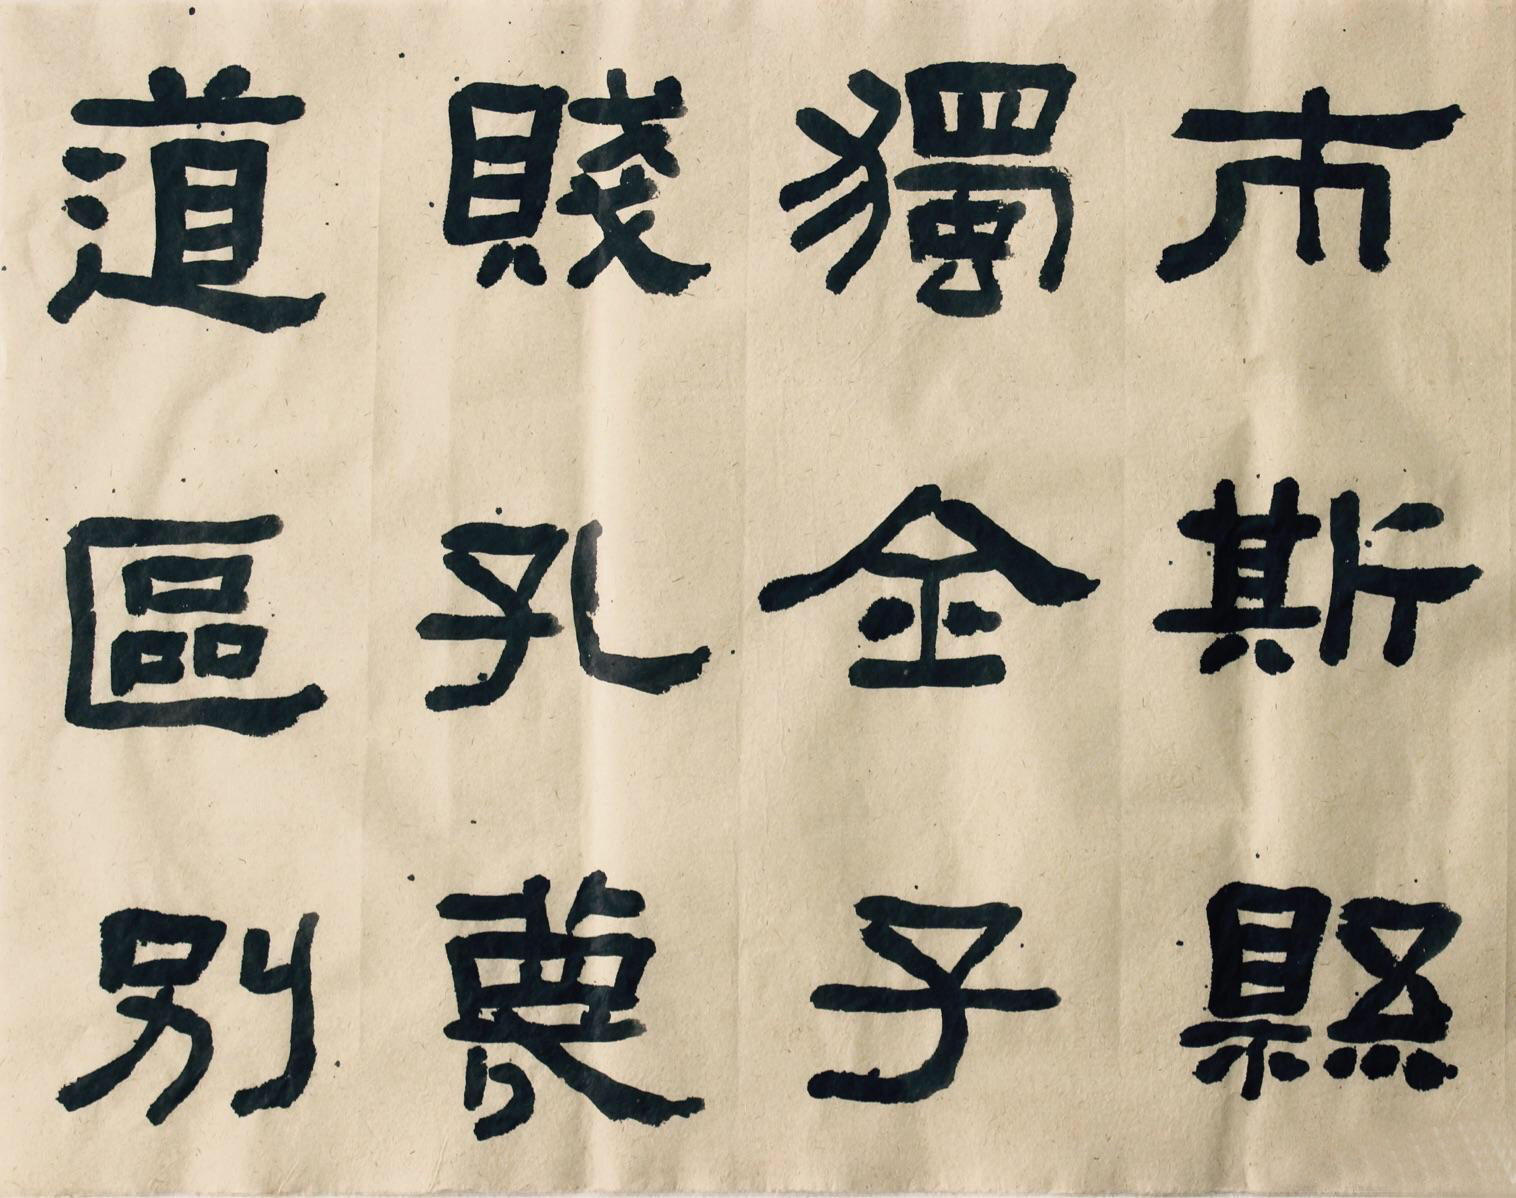 市斯縣
獨金子
賤孔蔑
道區別